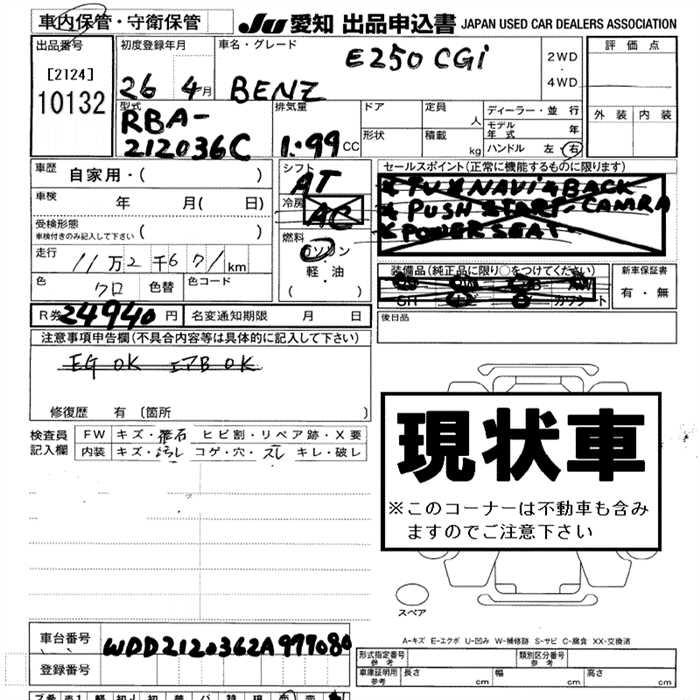 車内保管・守衛保管
JU 愛知 出品申込書 JAPAN USED CAR DEALERS ASSOCIATION
出品番号
[2124]
10132
初度登録年月
26 4月
車名・グレード
E250 CGi
BENZ
2WD
・
4WD
評価点
外装 内装
型式
RBA-
212036C
排気量
1.99 CC
ドア
定員 人
形状
積載 kg
ディーラー・並行
モデル年式 年
ハンドル 左・右
車歴
自家用・( )
車検 年 月( 日)
受検形態
車検付きのみ記入して下さい ( )
走行
11万2千671km
色
クロ
色替
色コード
シフト
AT
冷房
AC
燃料
ガソリン
軽・油
( )
セールスポイント(正常に機能するものに限ります)
NAVi BACK
PUSH START CAMRA
POWER SEAT
装備品(純正品に限り○をつけてください)
新車保証書
有・無
R券 24940円
名変通知期限 月 日
後日品
注意事項申告欄(不具合内容等は具体的に記入して下さい)
EG OK エアB OK
修復歴 有 [箇所 ]
検査員
記入欄
FW キズ・飛石 ヒビ割・リペア跡・X要
内装 キズ・汚レ コゲ・穴・スレ キレ・破レ
現状車
※このコーナーは不動車も含み
ますのでご注意下さい
スペア
A-キズ E-エクボ U-凹み W-補修跡 S-サビ C-腐食 XX-交換済
車台番号
WDD2120362A997080
登録番号
形式指定番号
参考
類別区分番号
参考
車庫証明用
参考
長さ cm
幅 cm
高さ cm